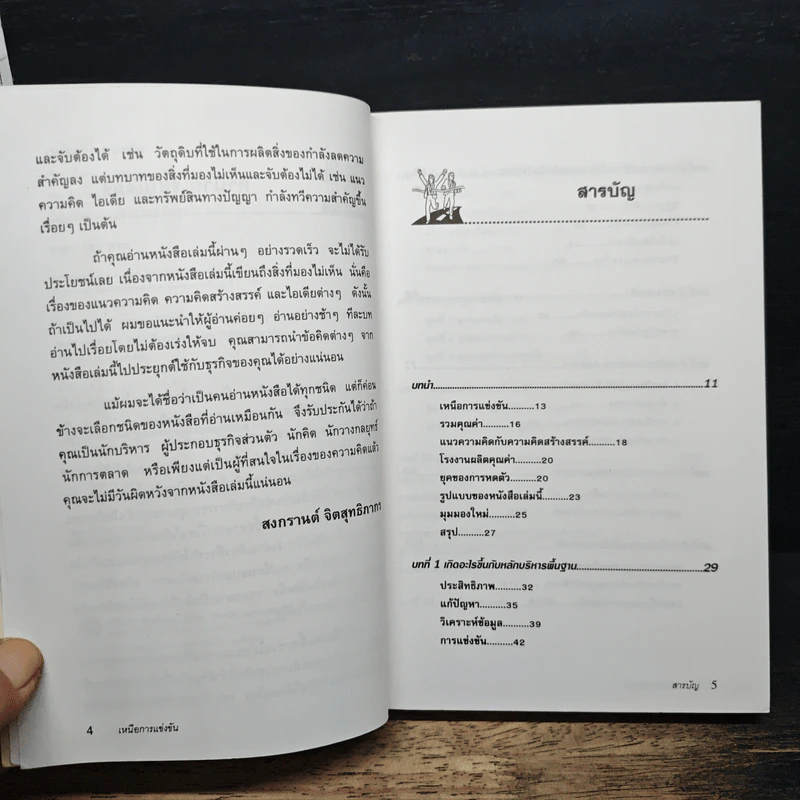 และจับต้องได้ เช่น วัตถุดิบที่ใช้ในการผลิตสิ่งของกำลังลดความ
สำคัญลง แต่บทบาทของสิ่งที่มองไม่เห็นและจับต้องไม่ได้ เช่น แนว
ความคิด ไอเดีย และทรัพย์สินทางปัญญา กำลังทวีความสำคัญขึ้น
เรื่อยๆ เป็นต้น
ถ้าคุณอ่านหนังสือเล่มนี้ผ่านๆ อย่างรวดเร็ว จะไม่ได้รับ
ประโยชน์เลย เนื่องจากหนังสือเล่มนี้เขียนถึงสิ่งที่มองไม่เห็น นั่นคือ
เรื่องของแนวความคิด ความคิดสร้างสรรค์ และไอเดียต่างๆ ดังนั้น
ถ้าเป็นไปได้ ผมขอแนะนำให้ผู้อ่านค่อยๆ อ่านอย่างช้าๆ ทีละบท
อ่านไปเรื่อยโดยไม่ต้องเร่งให้จบ คุณสามารถนำข้อคิดต่างๆ จาก
หนังสือเล่มนี้ไปประยุกต์ใช้กับธุรกิจของคุณได้อย่างแน่นอน
แม้ผมจะได้ชื่อว่าเป็นคนอ่านหนังสือได้ทุกชนิด แต่ก็ค่อน
ข้างจะเลือกชนิดของหนังสือที่อ่านเหมือนกัน จึงรับประกันได้ว่าถ้า
คุณเป็นนักบริหาร ผู้ประกอบธุรกิจส่วนตัว นักคิด นักวางกลยุทธ์
นักการตลาด หรือเพียงแต่เป็นผู้ที่สนใจในเรื่องของความคิดแล้ว
คุณจะไม่มีวันผิดหวังจากหนังสือเล่มนี้แน่นอน
สงกรานต์ จิตสุทธิภากร
4 เหนือการแข่งขัน
สารบัญ
บทนำ..........11
เหนือการแข่งขัน..........13
รวมคุณค่า..........16
แนวความคิดกับความคิดสร้างสรรค์..........18
โรงงานผลิตคุณค่า..........20
ยุคของการหดตัว..........20
รูปแบบของหนังสือเล่มนี้..........23
มุมมองใหม่..........25
สรุป..........27
บทที่ 1 เกิดอะไรขึ้นกับหลักบริหารพื้นฐาน..........29
ประสิทธิภาพ..........32
แก้ปัญหา..........35
วิเคราะห์ข้อมูล..........39
การแข่งขัน..........42
สารบัญ 5